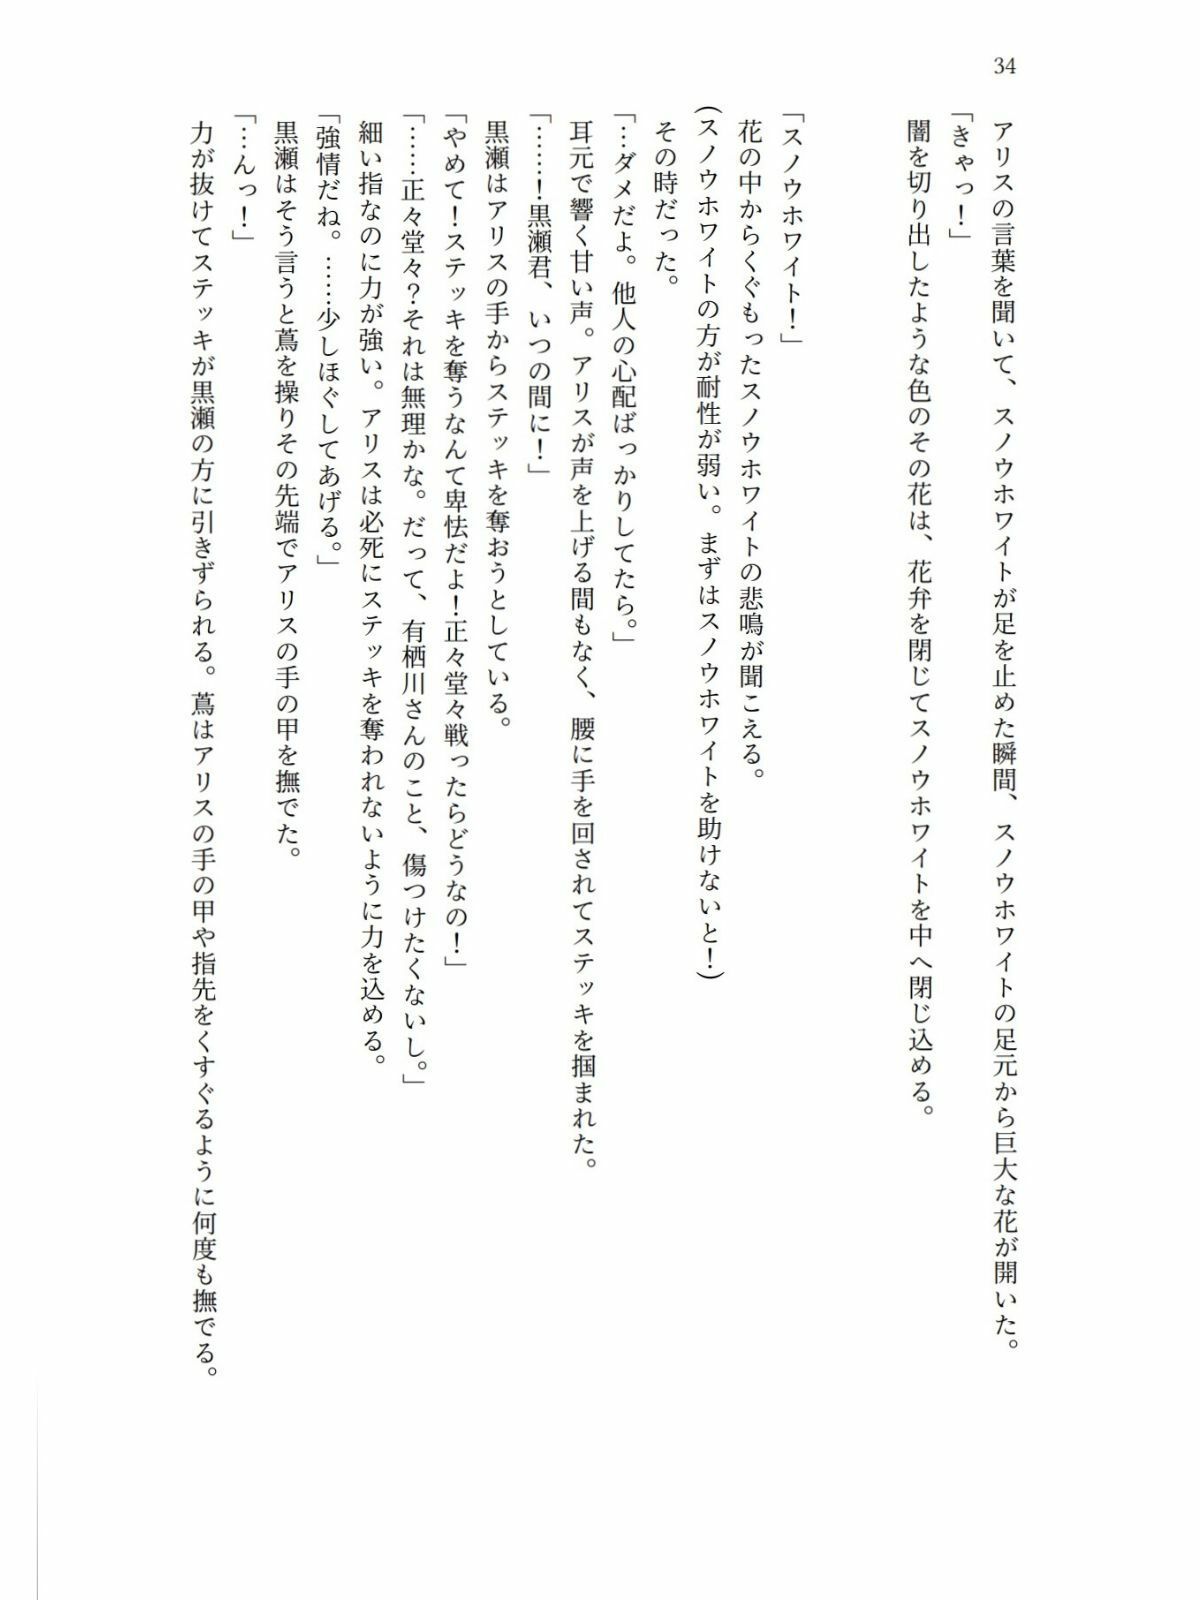 34
アリスの言葉を聞いて、スノウホワイトが足を止めた瞬間、スノウホワイトの足元から巨大な花が開いた。
「きゃっ！」
闇を切り出したような色のその花は、花弁を閉じてスノウホワイトを中へ閉じ込める。
「スノウホワイト！」
花の中からくぐもったスノウホワイトの悲鳴が聞こえる。
(スノウホワイトの方が耐性が弱い。まずはスノウホワイトを助けないと！)
その時だった。
「…ダメだよ。他人の心配ばっかりしてたら。」
耳元で響く甘い声。アリスが声を上げる間もなく、腰に手を回されてステッキを掴まれた。
「……！黒瀬君、いつの間に！」
黒瀬はアリスの手からステッキを奪おうとしている。
「やめて！ステッキを奪うなんて卑怯だよ！正々堂々戦ったらどうなの！」
「……正々堂々？それは無理かな。だって、有栖川さんのこと、傷つけたくないし。」
細い指なのに力が強い。アリスは必死にステッキを奪われないように力を込める。
「強情だね。……少しほぐしてあげる。」
黒瀬はそう言うと蔦を操りその先端でアリスの手の甲を撫でた。
「…んっ！」
力が抜けてステッキが黒瀬の方に引きずられる。蔦はアリスの手の甲や指先をくすぐるように何度も撫でる。